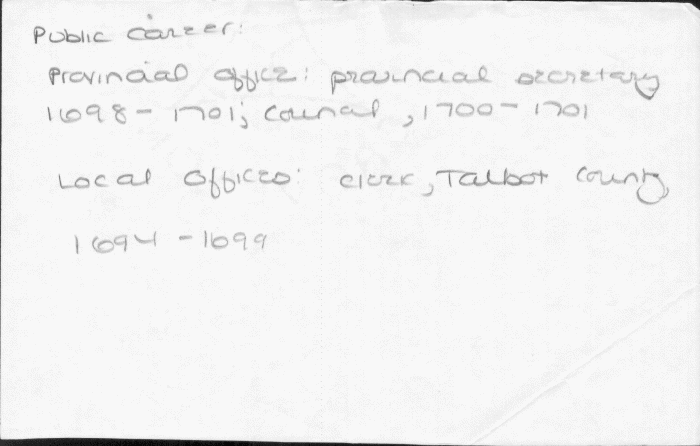 Public career:
Provincial office: provincial secretary
1698 - 1701; Council, 1700 - 1701
Local Offices: clerk, Talbot County,
1694 - 1699